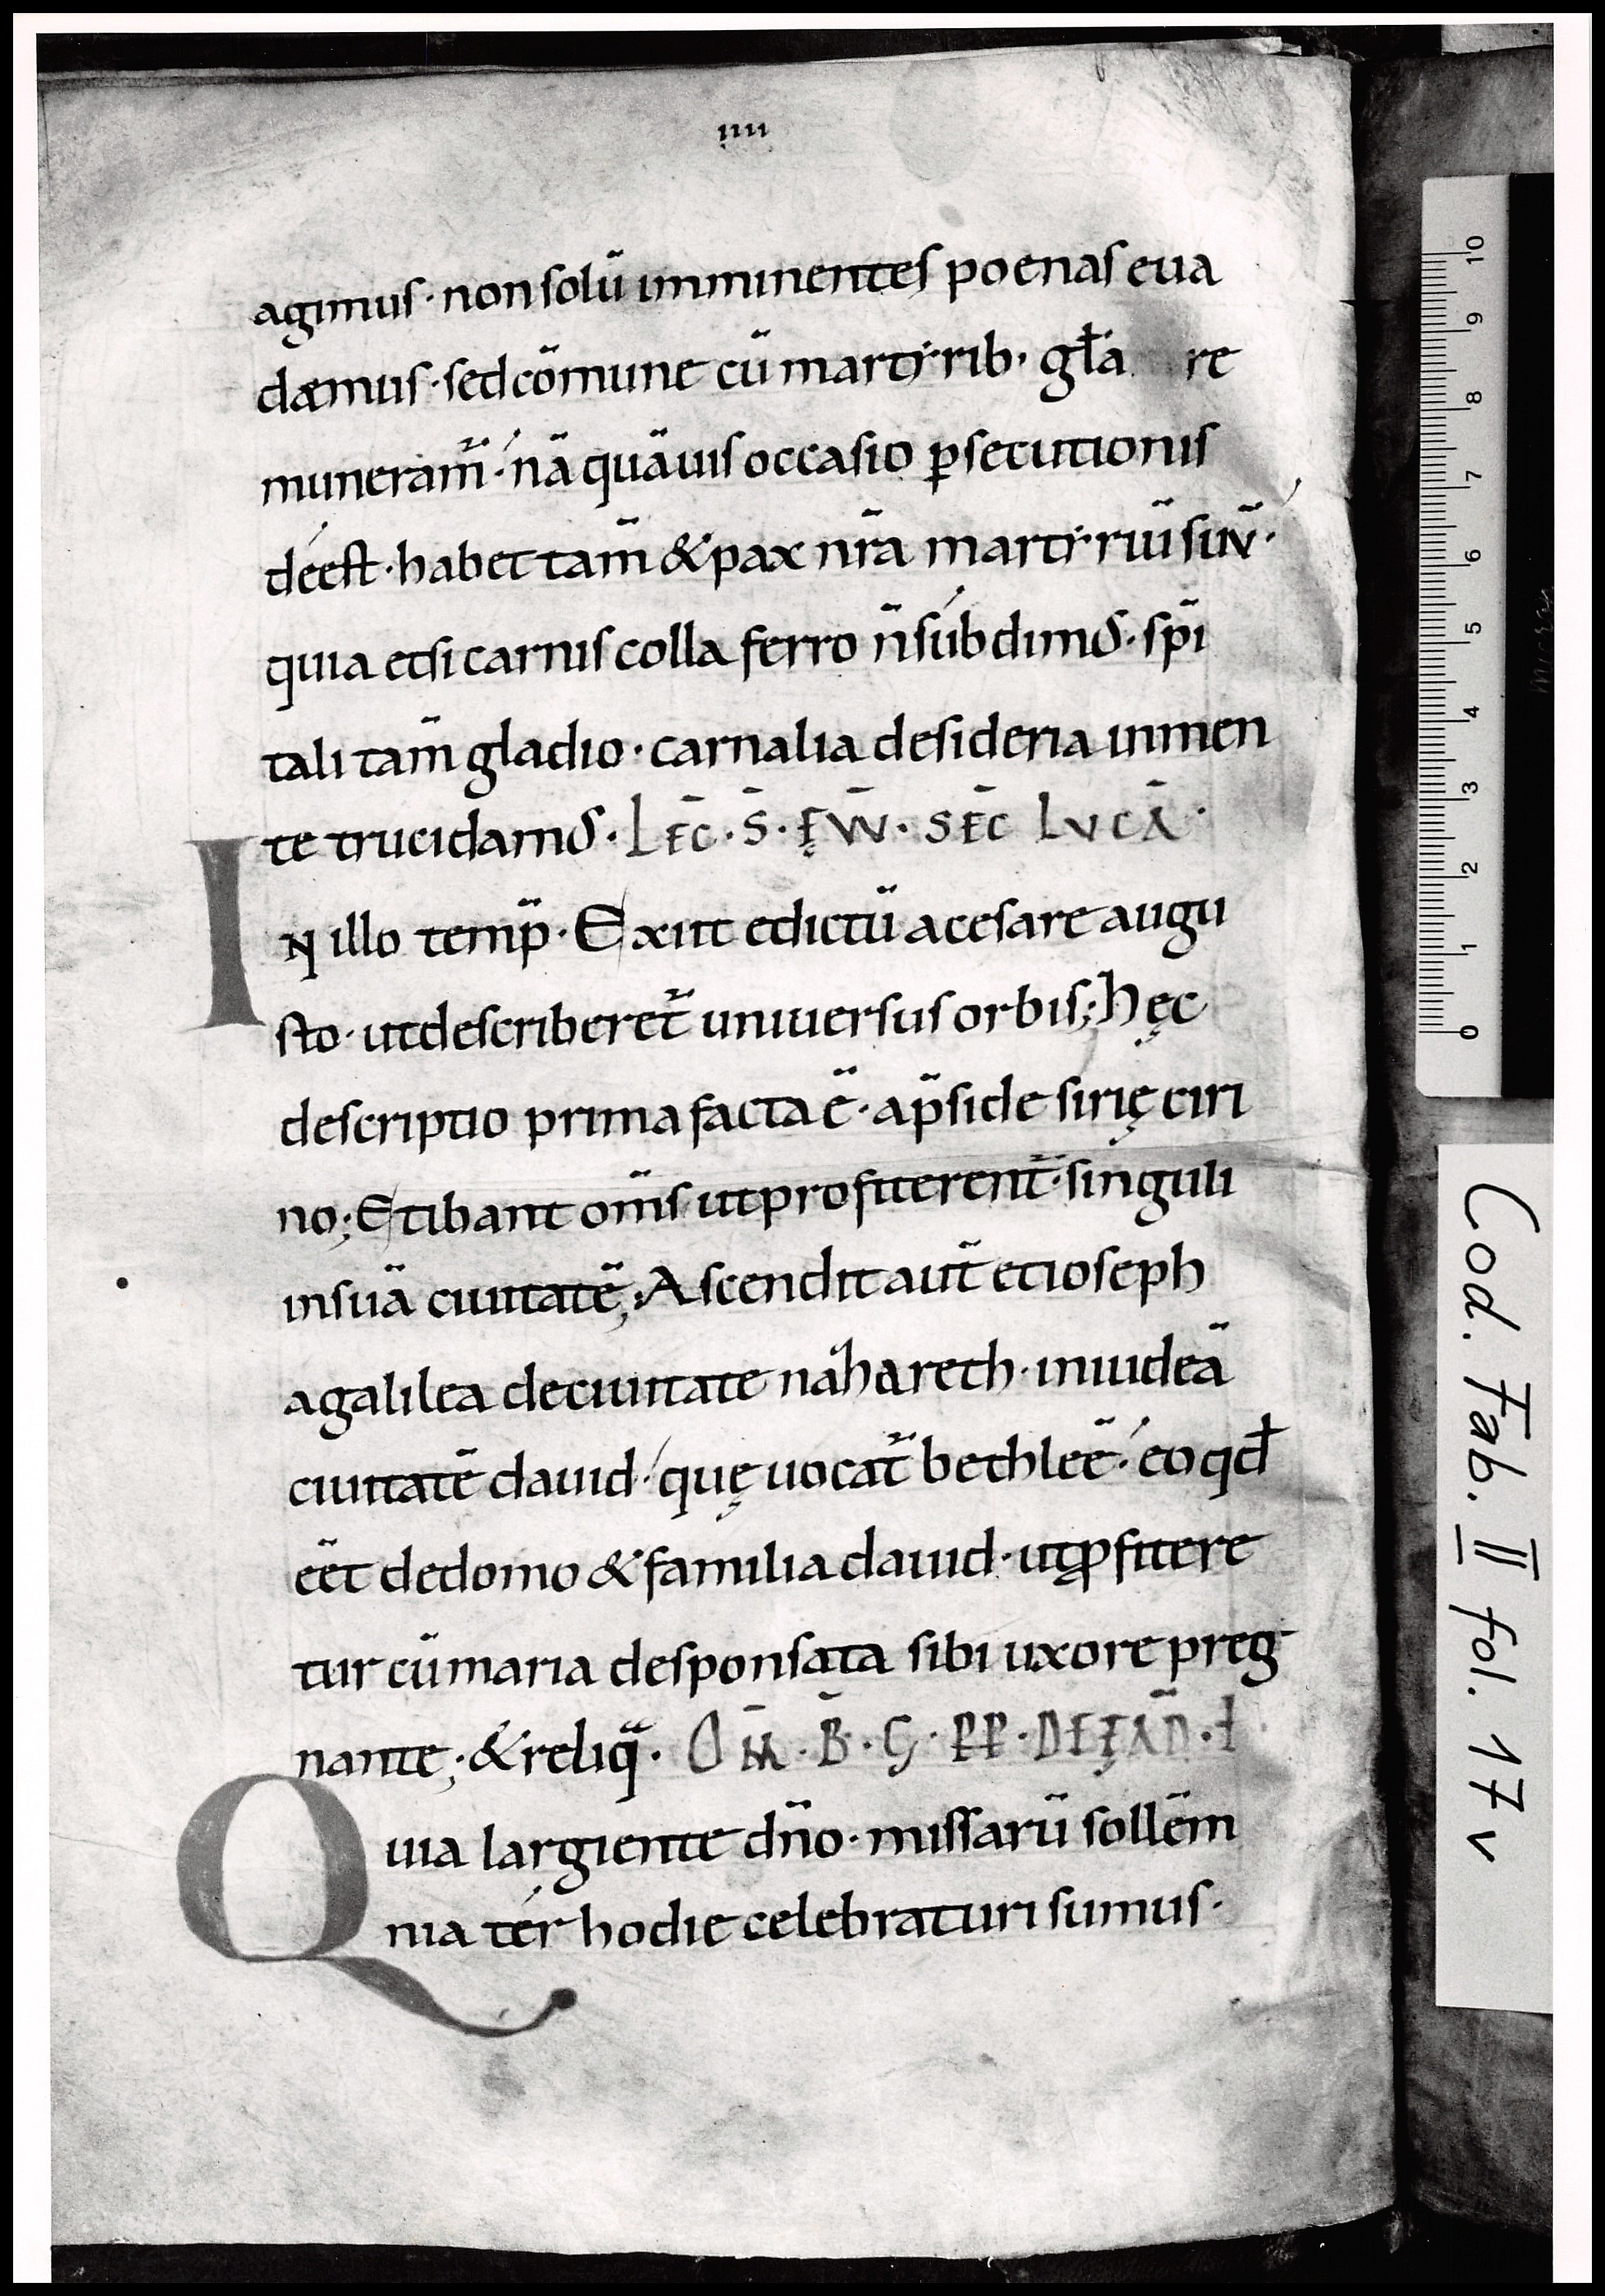 iiii
agimus· non solū imminentes poenas eua
dæmus· sed cōmune cū martẏrib· gła re
muneram̄· nā quāuis occasio ꝑsecutionis
déest· habet tam̄ & pax nr̄a martẏriū suū·
quia etsi carnis colla ferro n̄ súbdimꝰ· sp̄i
tali tam̄ gladio· carnalia desideria in men
te trucidamꝰ· LEC̄· S̄· ĘVV̄· SEC̄ LVCĀ·
IN illo temp̄· Exiit edictū a cesare augu
sto· ut describeret̄ uniuersus orbis; Hęc
descriptio prima facta ē· a p̄side sirię ciri
no; Et ibant om̄s ut profiterent̄· singuli
in suā ciuitatē; Ascendit aut̄ et ioseph
a galilea de ciuitate náhareth· in iudeā
ciuitatē dauid· quę uocat̄ bethleē· eo qđ
eēt de domo & familia dauid· ut ꝓfitere
tur cū maria desponsata sibi uxore preg
nante; & reliq̄· OM̄· B̄· G· PP· DE EAD̄· Ł
Quia largiente dn̄o· missarū sollēm
nia tér hodie celebraturi sumus·
10 9 8 7 6 5 4 3 2 1 0
Cod. Fab. II fol. 17 v